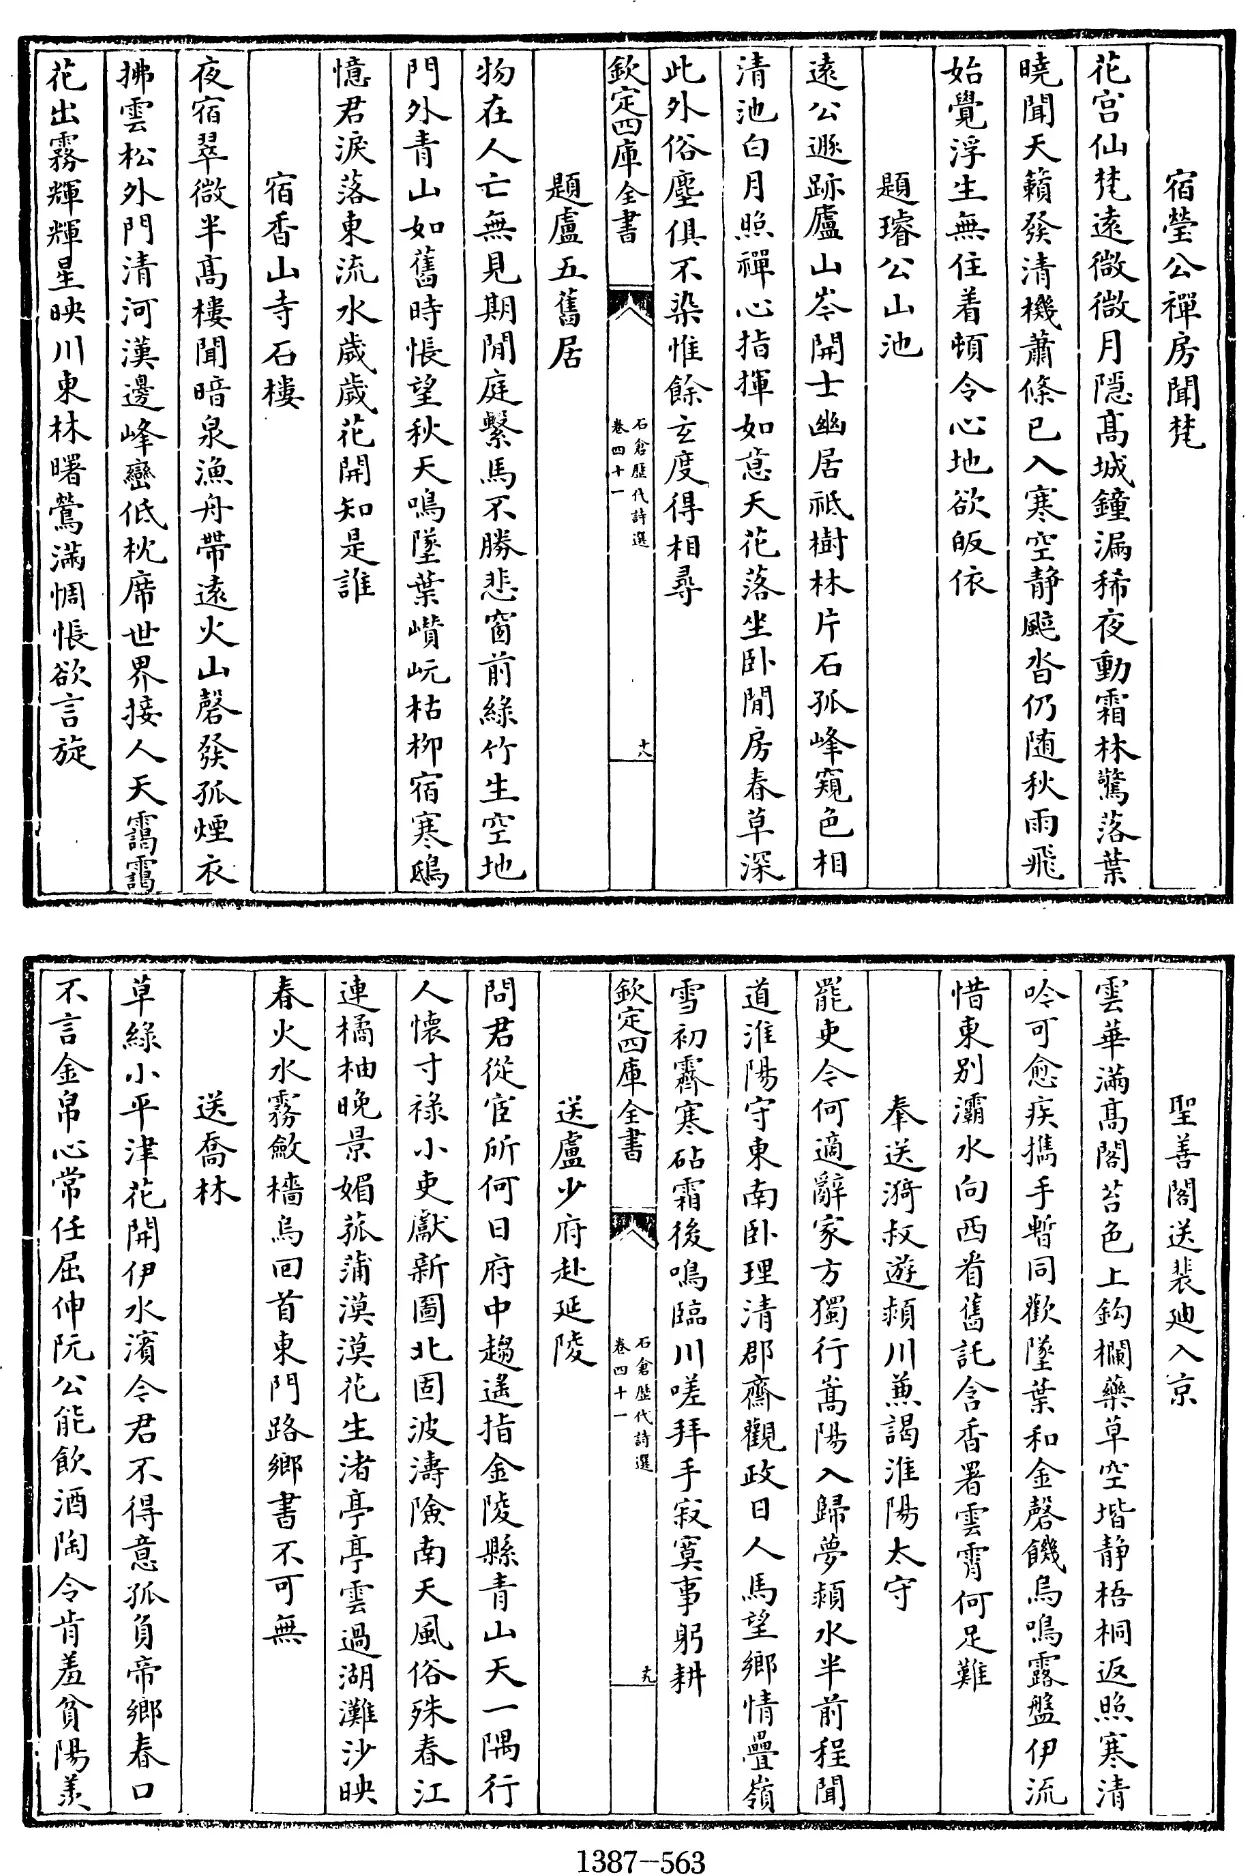 宿瑩公禪房聞梵
花宫仙梵遠微微月隠髙城鐘漏稀夜動霜林驚落葉
曉聞天籟發清機蕭條已入寒空静颯沓仍随秋雨飛
始覺浮生無住着頓令心地欲皈依
題璿公山池
遠公遯跡廬山岑開士幽居祗樹林片石孤峰窺色相
清池白月照禪心指揮如意天花落坐卧閒房春草深
此外俗塵俱不染惟餘玄度得相尋
欽定四庫全書
石倉歴代詩選
卷四十一
十八
題盧五舊居
物在人亡無見期閒庭繫馬不勝悲窗前緑竹生空地
門外青山如舊時悵望秋天鳴墜葉巑岏枯栁宿寒鴟
憶君淚落東流水歲歲花開知是誰
宿香山寺石樓
夜宿翠微半髙樓聞暗泉漁舟帶遠火山磬發孤煙衣
拂雲松外門清河漢邊峰巒低枕席世界接人天靄靄
花出霧輝輝星映川東林曙鶯滿惆悵欲言旋
聖善閣送裴廸入京
雲華滿髙閣苔色上鈎欄藥草空堦静梧桐返照寒清
吟可愈疾攜手暫同歡墜葉和金磬饑烏鳴露盤伊流
惜東别灞水向西看舊託含香署雲霄何足難
奉送漪叔遊潁川兼謁淮陽太守
罷吏今何適辭家方獨行嵩陽入歸夢潁水半前程聞
道淮陽守東南卧理清郡齋觀政日人馬望鄉情疊嶺
雪初霽寒砧霜後鳴臨川嗟拜手寂寞事躬耕
欽定四庫全書
石倉歴代詩選
卷四十一
十九
送盧少府赴延陵
問君從宦所何日府中趨遙指金陵縣青山天一隅行
人懷寸祿小吏獻新圖北固波濤險南天風俗殊春江
連橘柚晚景媚菰蒲漠漠花生渚亭亭雲過湖灘沙映
春火水霧斂檣烏回首東門路鄉書不可無
送喬林
草緑小平津花開伊水濱今君不得意孤負帝鄉春口
不言金帛心常任屈伸阮公能飲酒陶令肯羞貧陽羡
1387-563